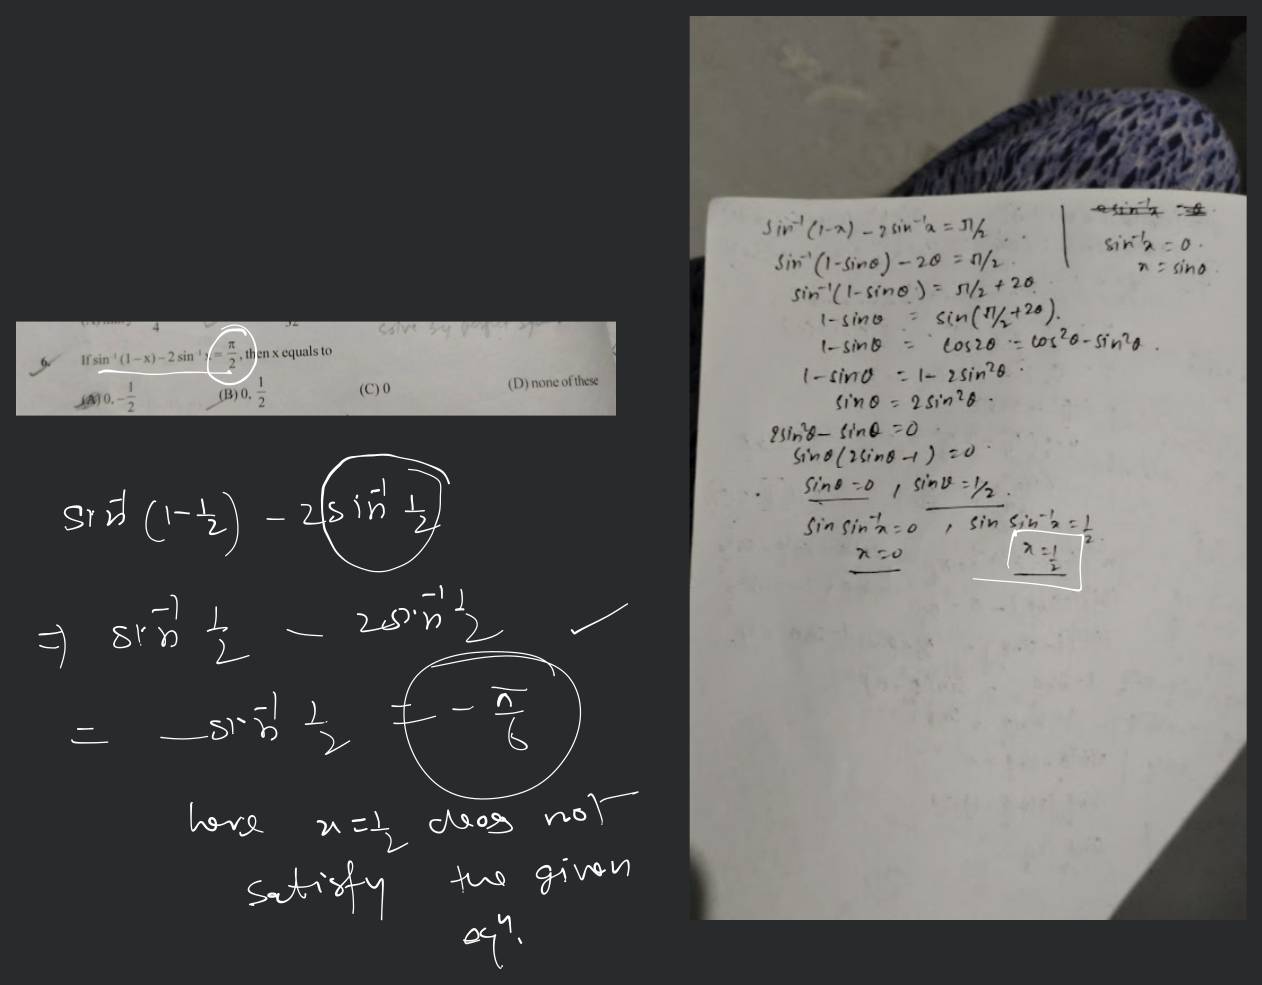 6. If sin⁻¹(1 − x) − 2 sin⁻¹ x = π/2, then x equals to
(A) 0, −1/2 (B) 0, 1/2 (C) 0 (D) none of these
sin⁻¹ (1 − 1/2) − 2 sin⁻¹ 1/2
⇒ sin⁻¹ 1/2 − 2 sin⁻¹ 1/2 ✓
= − sin⁻¹ 1/2 = − π/6
here x = 1/2 does not
satisfy the given
eqⁿ.
sin⁻¹(1-x) − 2 sin⁻¹x = π/2
sin⁻¹x = θ.
x = sinθ.
sin⁻¹(1-sinθ) − 2θ = π/2.
sin⁻¹(1-sinθ) = π/2 + 2θ
1-sinθ = sin(π/2 + 2θ).
1-sinθ = cos2θ = cos²θ − sin²θ.
1-sinθ = 1 − 2sin²θ.
sinθ = 2sin²θ.
2sin²θ − sinθ = 0
sinθ(2sinθ − 1) = 0
sinθ = 0, sinθ = 1/2.
sin sin⁻¹x = 0, sin sin⁻¹x = 1/2.
x = 0 x = 1/2